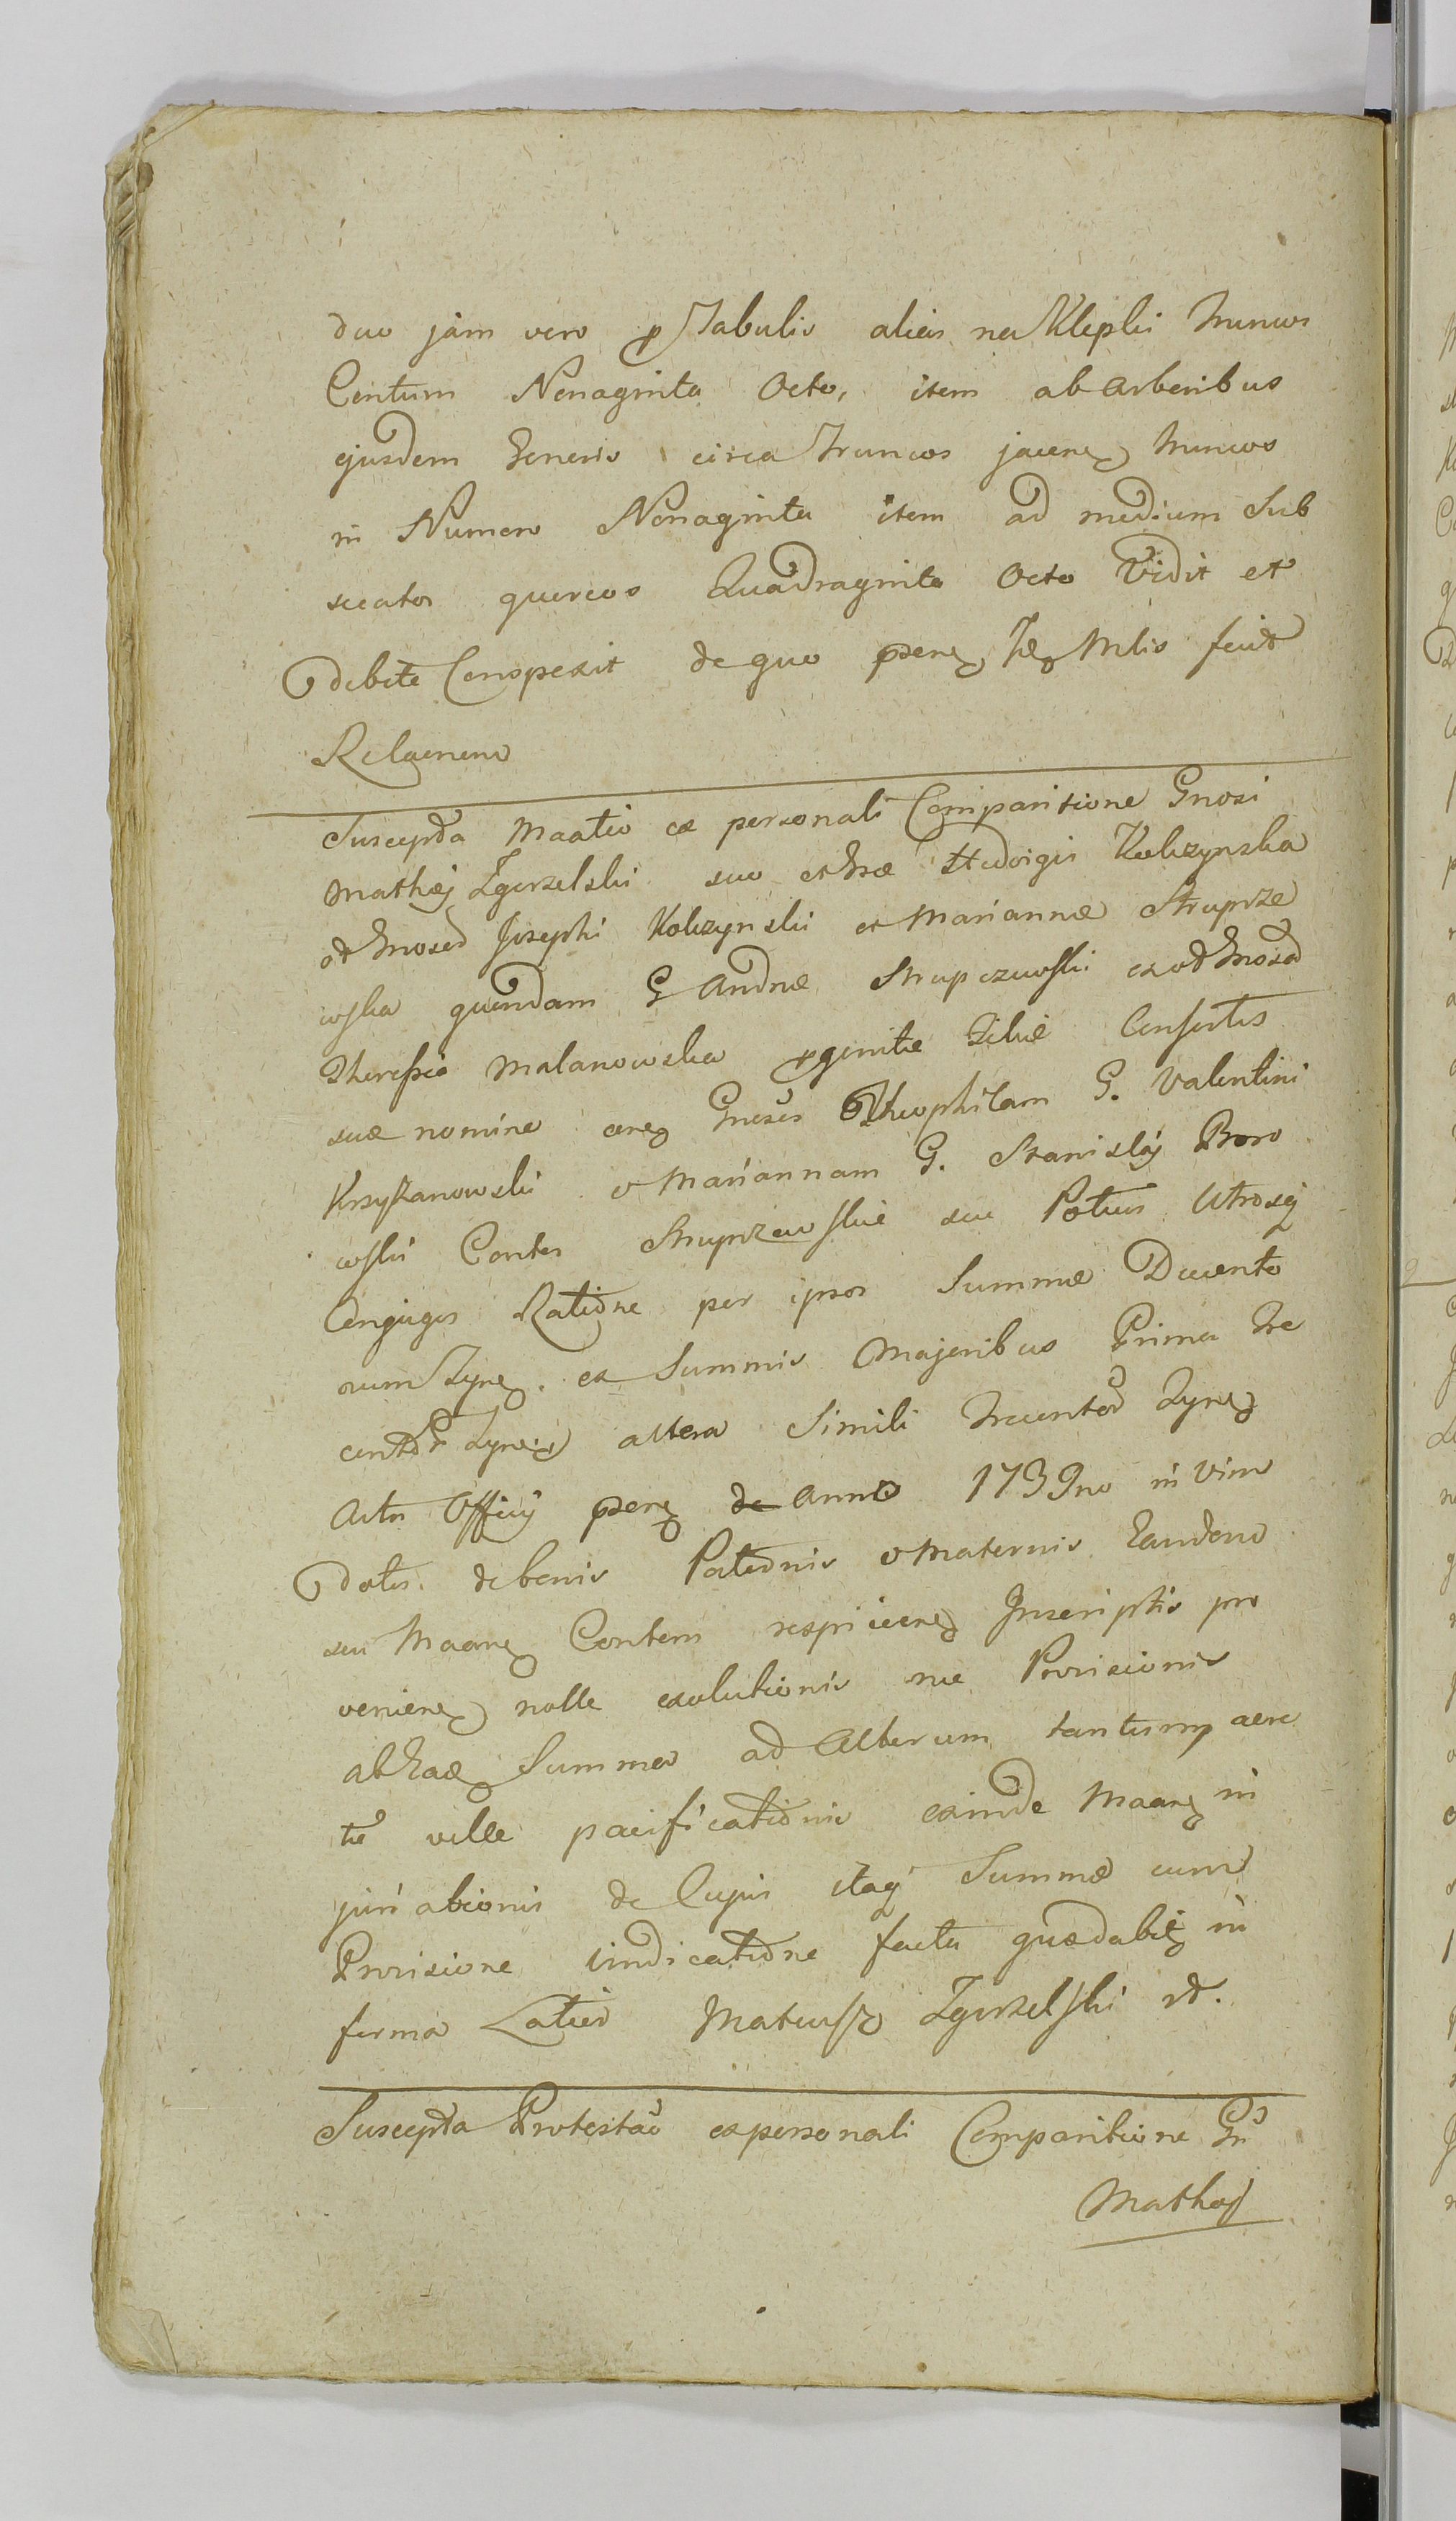 duo jam vero p Tabulis alias na Klepki truncos
Centum Nonaginta Octo, item ab arboribus
ejusdem Generis circa truncos jacen truncos
in Numero Nonaginta item ad medium Sub
secatos quercos Quadraginta Octo Vidit et
debite Conspexit de quo psens Mlis fecit
Relaonem
Suscepta Maatio ex personali Comparitione Gnosi
Mathej Zgorzelski suo et Hedvigis Kolczynska
olt Gnosor Josephi Kolczynski et Mariannæ Strupcze
wska quondam G Andræ Strupczewski ex olt Gnosa
Theressia Malanowska pgenitæ Filiæ Consortis
suæ nomine Gnosos Theophilam G. Valentini
Krzyżanowski et Mariannam G. Stanislaj Boro
wski Contes Strupczewskie seu Potius Utrosq
Conjuges Ratione per ipsos Summæ Ducento
rum Zyne ex Summis Majoribus Prima Tre
centor Zyne altera Simili Trecentor Zyne
Actis Officij psens de Anno 1739no in Vim
dotis de bonis Paternis et Maternis Eandem
seu Maane Contem respicien Inscriptis pro
venien nolle exolutionis ne Provisionis
ab Eade Summa ad Alterum tantum acre
tæ velle pacificationis exinde Maane in
juri ationis de Cujus itaq Summæ cum
Provisione vindicatione facta quædabit in
forma Latior Mateusz Zgorzelski st.
Suscepta Protestao ex personali Comparitione Gn
Mathej